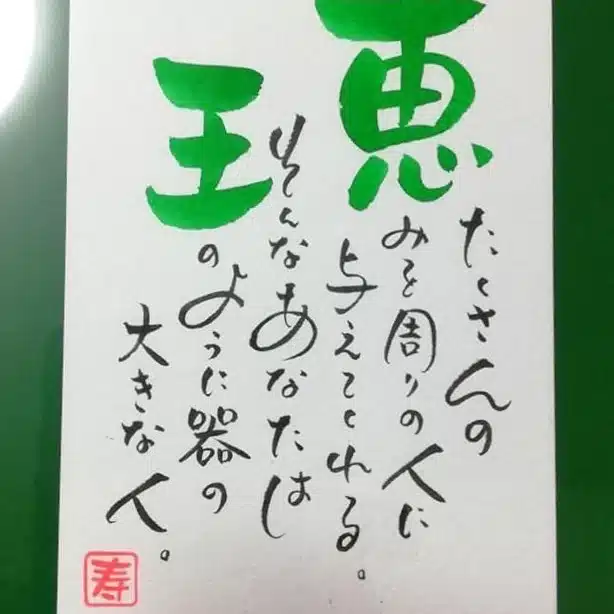 たくさんの
恵みを周りの人に
与えてくれる。
そんなあなたは
王のように器の
大きな人。
寿